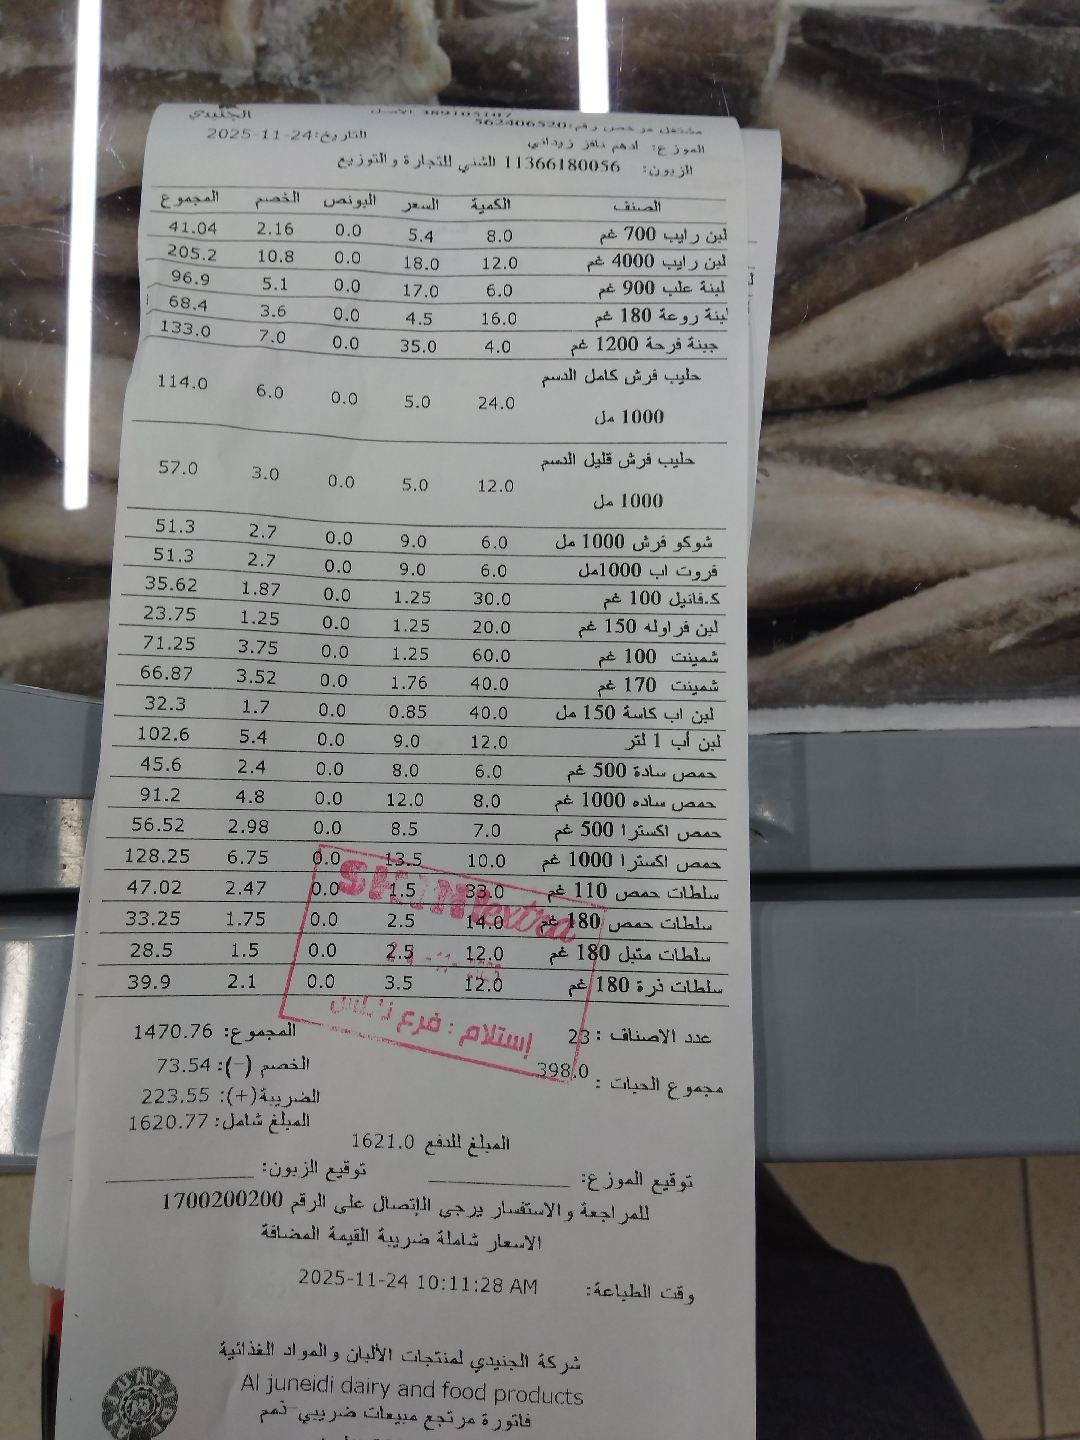 الجنيدي
مشتغل مرخص رقم:562406520
التاريخ:24-11-2025
الموزع: ادهم نافز زيداني
الزبون: 11366180056 الشني للتجارة والتوزيع
الصنف الكمية السعر البونص الخصم المجموع
لبن رايب 700 غم 8.0 5.4 0.0 2.16 41.04
لبن رايب 4000 غم 12.0 18.0 0.0 10.8 205.2
لبنة علب 900 غم 6.0 17.0 0.0 5.1 96.9
لبنة روعة 180 غم 16.0 4.5 0.0 3.6 68.4
جبنة فرحة 1200 غم 4.0 35.0 0.0 7.0 133.0
حليب فرش كامل الدسم
1000 مل 24.0 5.0 0.0 6.0 114.0
حليب فرش قليل الدسم
1000 مل 12.0 5.0 0.0 3.0 57.0
شوكو فرش 1000 مل 6.0 9.0 0.0 2.7 51.3
فروت اب 1000مل 6.0 9.0 0.0 2.7 51.3
ك.فانيل 100 غم 30.0 1.25 0.0 1.87 35.62
لبن فراوله 150 غم 20.0 1.25 0.0 1.25 23.75
شمينت 100 غم 60.0 1.25 0.0 3.75 71.25
شمينت 170 غم 40.0 1.76 0.0 3.52 66.87
لبن اب كاسة 150 مل 40.0 0.85 0.0 1.7 32.3
لبن أب 1 لتر 12.0 9.0 0.0 5.4 102.6
حمص سادة 500 غم 6.0 8.0 0.0 2.4 45.6
حمص ساده 1000 غم 8.0 12.0 0.0 4.8 91.2
حمص اكسترا 500 غم 7.0 8.5 0.0 2.98 56.52
حمص اكسترا 1000 غم 10.0 13.5 0.0 6.75 128.25
سلطات حمص 110 غم 33.0 1.5 0.0 2.47 47.02
سلطات حمص 180 غم 14.0 2.5 0.0 1.75 33.25
سلطات متبل 180 غم 12.0 2.5 0.0 1.5 28.5
سلطات ذرة 180 غم 12.0 3.5 0.0 2.1 39.9
extra
إستلام : فرع نابلس
عدد الاصناف : 23
المجموع: 1470.76
مجموع الحبات : 398.0
الخصم (-): 73.54
الضريبة(+): 223.55
المبلغ شامل: 1620.77
المبلغ للدفع 1621.0
توقيع الموزع: توقيع الزبون:
للمراجعة والاستفسار يرجى الإتصال على الرقم 1700200200
الاسعار شاملة ضريبة القيمة المضافة
وقت الطباعة: 2025-11-24 10:11:28 AM
شركة الجنيدي لمنتجات الألبان والمواد الغذائية
Al juneidi dairy and food products
فاتورة مرتجع مبيعات ضريبي-ذمم